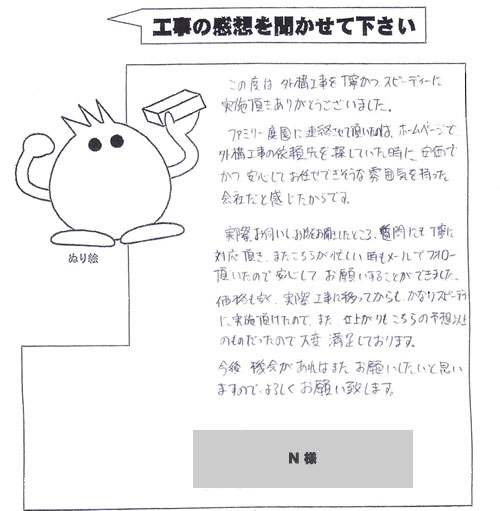 工事の感想を聞かせて下さい
この度は外構工事を丁寧かつスピーディーに
実施頂きありがとうございました。
ファミリー庭園に連絡させて頂いたのは、ホームページで
外構工事の依頼先を探していた時に、安価で
かつ安心してお任せできそうな雰囲気を持った
会社だと感じたからです。
実際、お伺いしお話をお聞きしたところ、質問にも丁寧に
対応頂き、またこちらが忙しい時もメールでフォロー
頂いたので安心してお願いすることができました。
価格も安く、実際工事に移ってからも、かなりスピーディー
に実施頂けたので、また、仕上がりもこちらの予想以上
のものだったので大変満足しております。
今後機会があればまたお願いしたいと思い
ますので、よろしくお願い致します。
ぬり絵
N 様